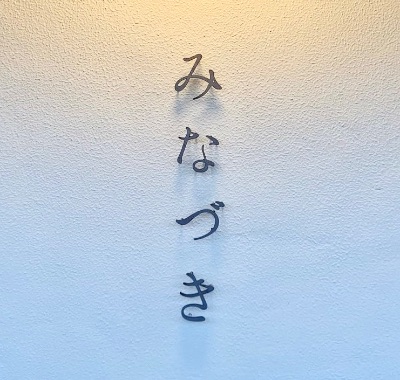 みなづき